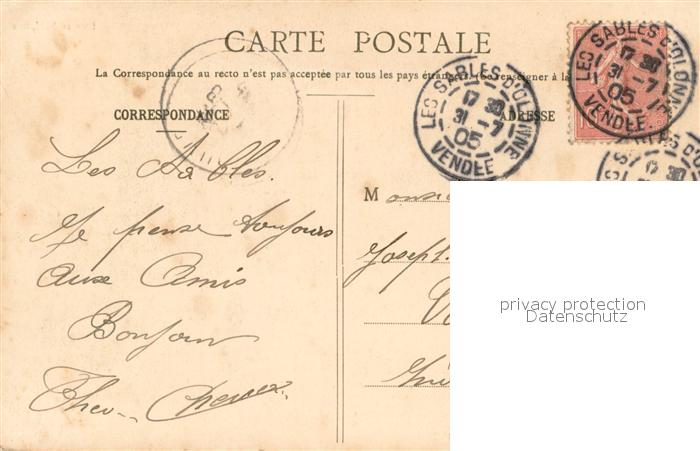 CARTE POSTALE
La Correspondance au recto n'est pas acceptée par tous les pays étrangers. (Se renseigner à la
CORRESPONDANCE
ADRESSE
LES SABLES D'OLONNE
17 30
31 -7
05
VENDÉE
LES SABLES D'OLONNE
17 30
31 -7
05
VENDÉE
17 30
Les Sables.
Je pense toujours
aux Amis
Bonjour
Theo
M
Joseph
privacy protection
Datenschutz